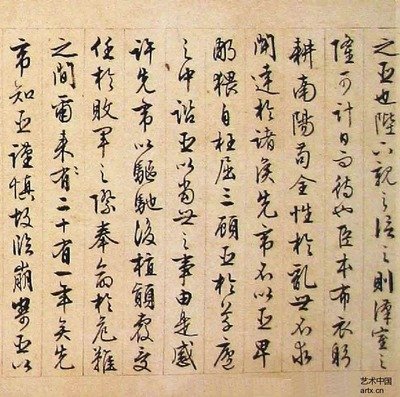 之臣也陛下親之信之則漢室之
隆可計日而待也臣本布衣躬
耕南陽苟全性於亂世不求
聞達於諸侯先帝不以臣卑
鄙猥自枉屈三顧臣於草廬
之中諮臣以當世之事由是感
許先帝以驅馳後值顛覆受
任於敗軍之際奉命於危難
之間爾來有二十有一年矣先
帝知臣謹慎故臨崩寄臣以
艺术中国
artx.cn